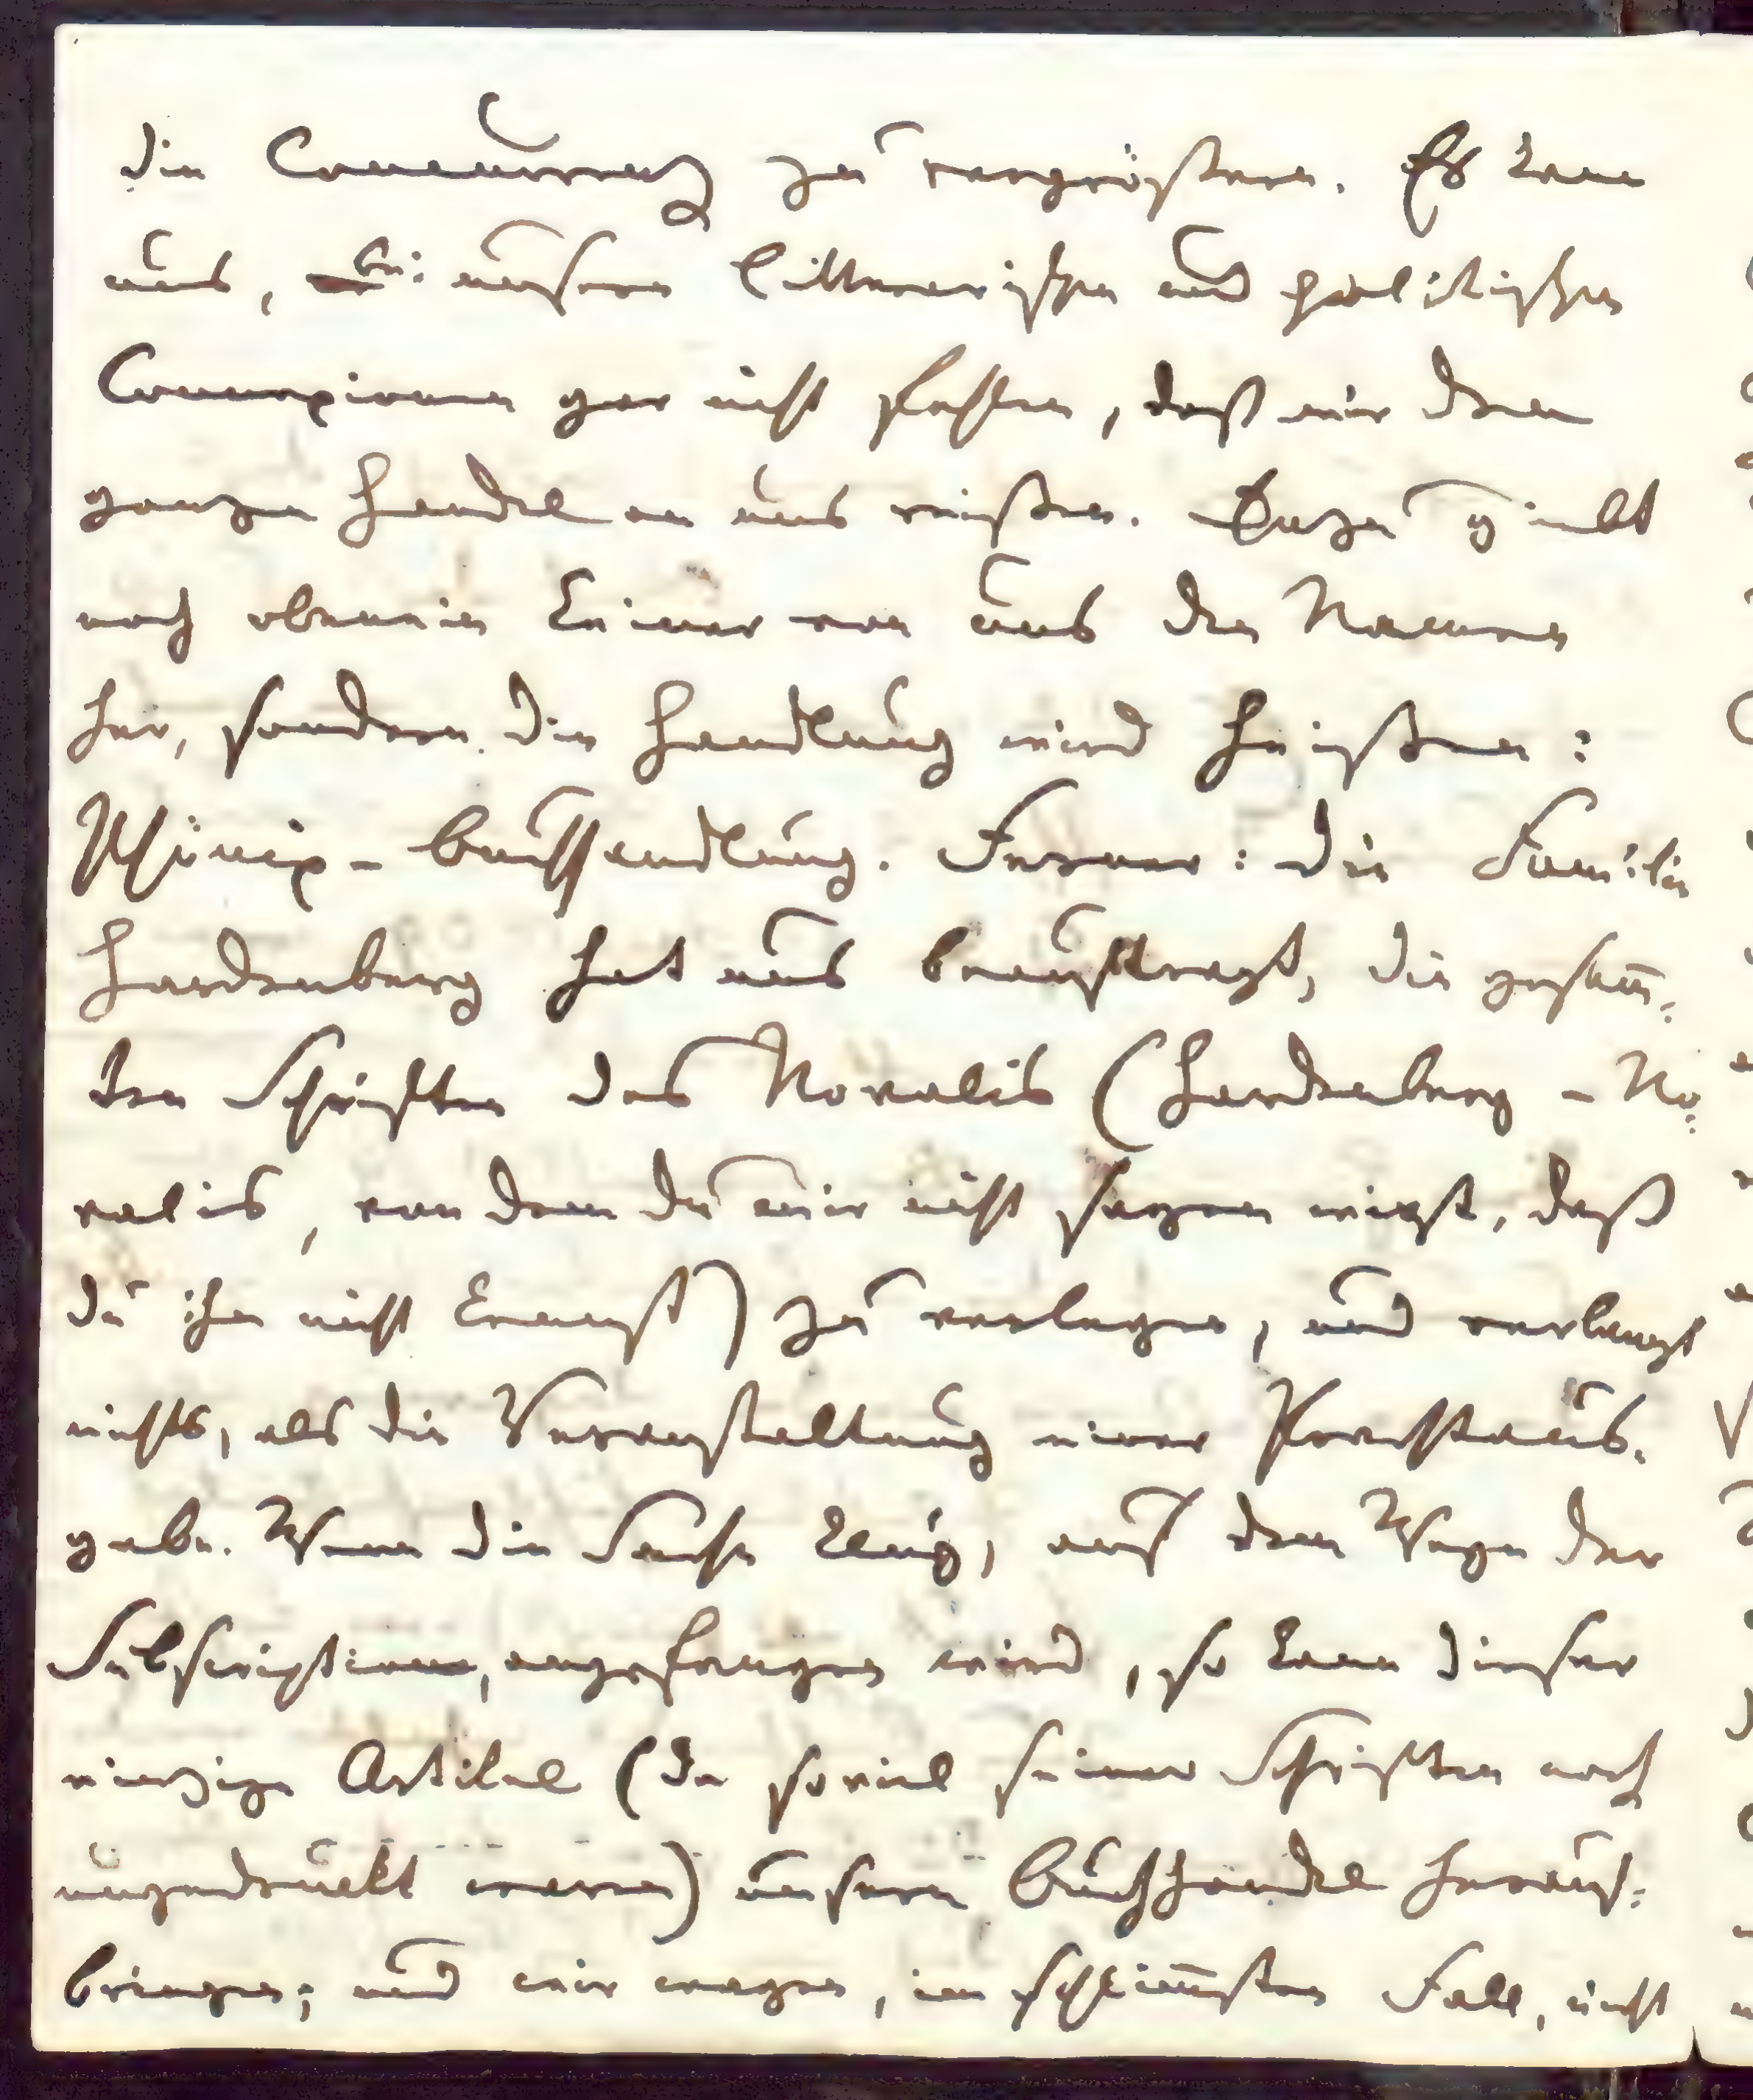 die Concurrenz zu vergrößern. Es kann
uns, bei unsern litterarischen und politischen
Connexionen gar nicht fehlen, daß wir den
ganzen Handel an uns reißen. Dazu giebt
noch obenein Keiner von uns den Namen
her, sondern die Handlung wird heißen:
Phönix-Buchhandlung. Ferner: die Familie
Hardenberg hat uns beauftragt, die gesam̄-
ten Schriften des Novalis (Hardenberg-No-
valis, von dem du mir nicht sagen wirst, daß
du ihn nicht kennst) zu verlegen, und verlangt
nichts, als die Veranstaltung einer Prachtaus-
gabe. Wenn die Sache klug, auf dem Wege der
Subscription, angefangen wird, so kann dieser
einzige Artikel (da soviel seiner Schriften noch
ungedruckt waren) unsern Buchhandel heraus-
bringen; und wir wagen, im schlim̄sten Fall, nicht